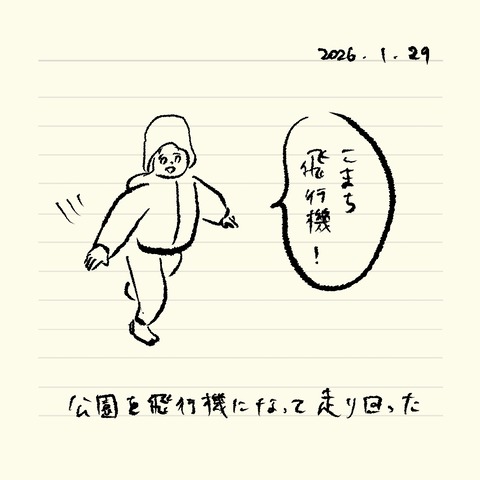 2026.1.29
こまち
飛行機!
公園を飛行機になって走り回った